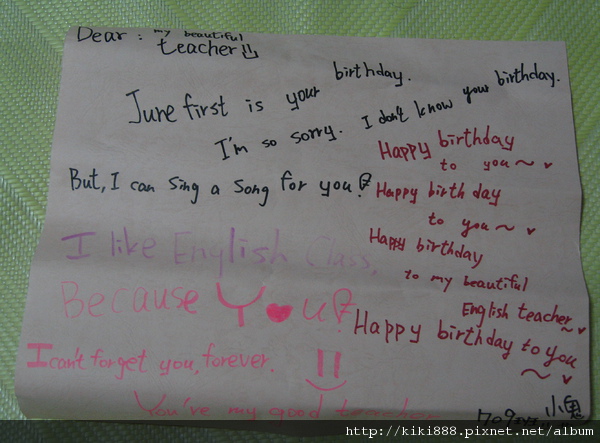 Dear: my beautiful
teacher
June first is your birthday.
I'm so sorry. I don't know your birthday.
But, I can sing a song for you!
Happy birthday
to you~
Happy birthday
to you~
Happy birthday
to my beautiful
English teacher~
Happy birthday to you
~
I like English Class,
Because You!
I can't forget you, forever.
You're my good teacher
709 小鬼
http://kiki888.pixnet.net/album